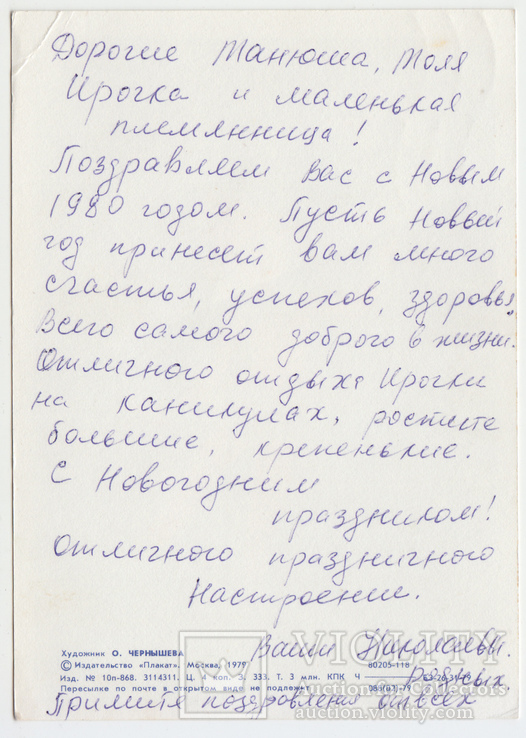 Дорогие Танюша, Толя
Ирочка и маленькая
племянница!
Поздравляем Вас с Новым
1980 годом. Пусть Новый
год принесет вам много
счастья, успехов, здоровья.
Всего самого доброго в жизни.
Отличного отдыха Ирочки
на каникулах, ростите
большие, крепенькие.
С Новогодним
праздником!
Отличного праздничного
Настроение.
Ваши
Художник О. ЧЕРНЫШЕВА
© Издательство «Плакат». Москва, 1979
80205-118
Изд. № 10п-868. 3114311. Ц. 4 коп. З. 333. Т. 3 млн. КПК Ч
родных.
Пересылке по почте в открытом виде не подлежит
Примите поздравления от всех
VIOLITY
Auction for Collectors
auction.violity.com